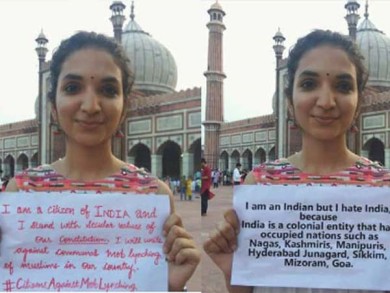 I am a citizen of INDIA and
I stand with secular values of
our Constitution. I will write
against communal Mob Lynching
of muslims in our country.
#CitizensAgainstMobLynching
I am an Indian but I hate India,
because
India is a colonial entity that has
occupied nations such as
Nagas, Kashmiris, Manipuris,
Hyderabad Junagard, Sikkim,
Mizoram, Goa.